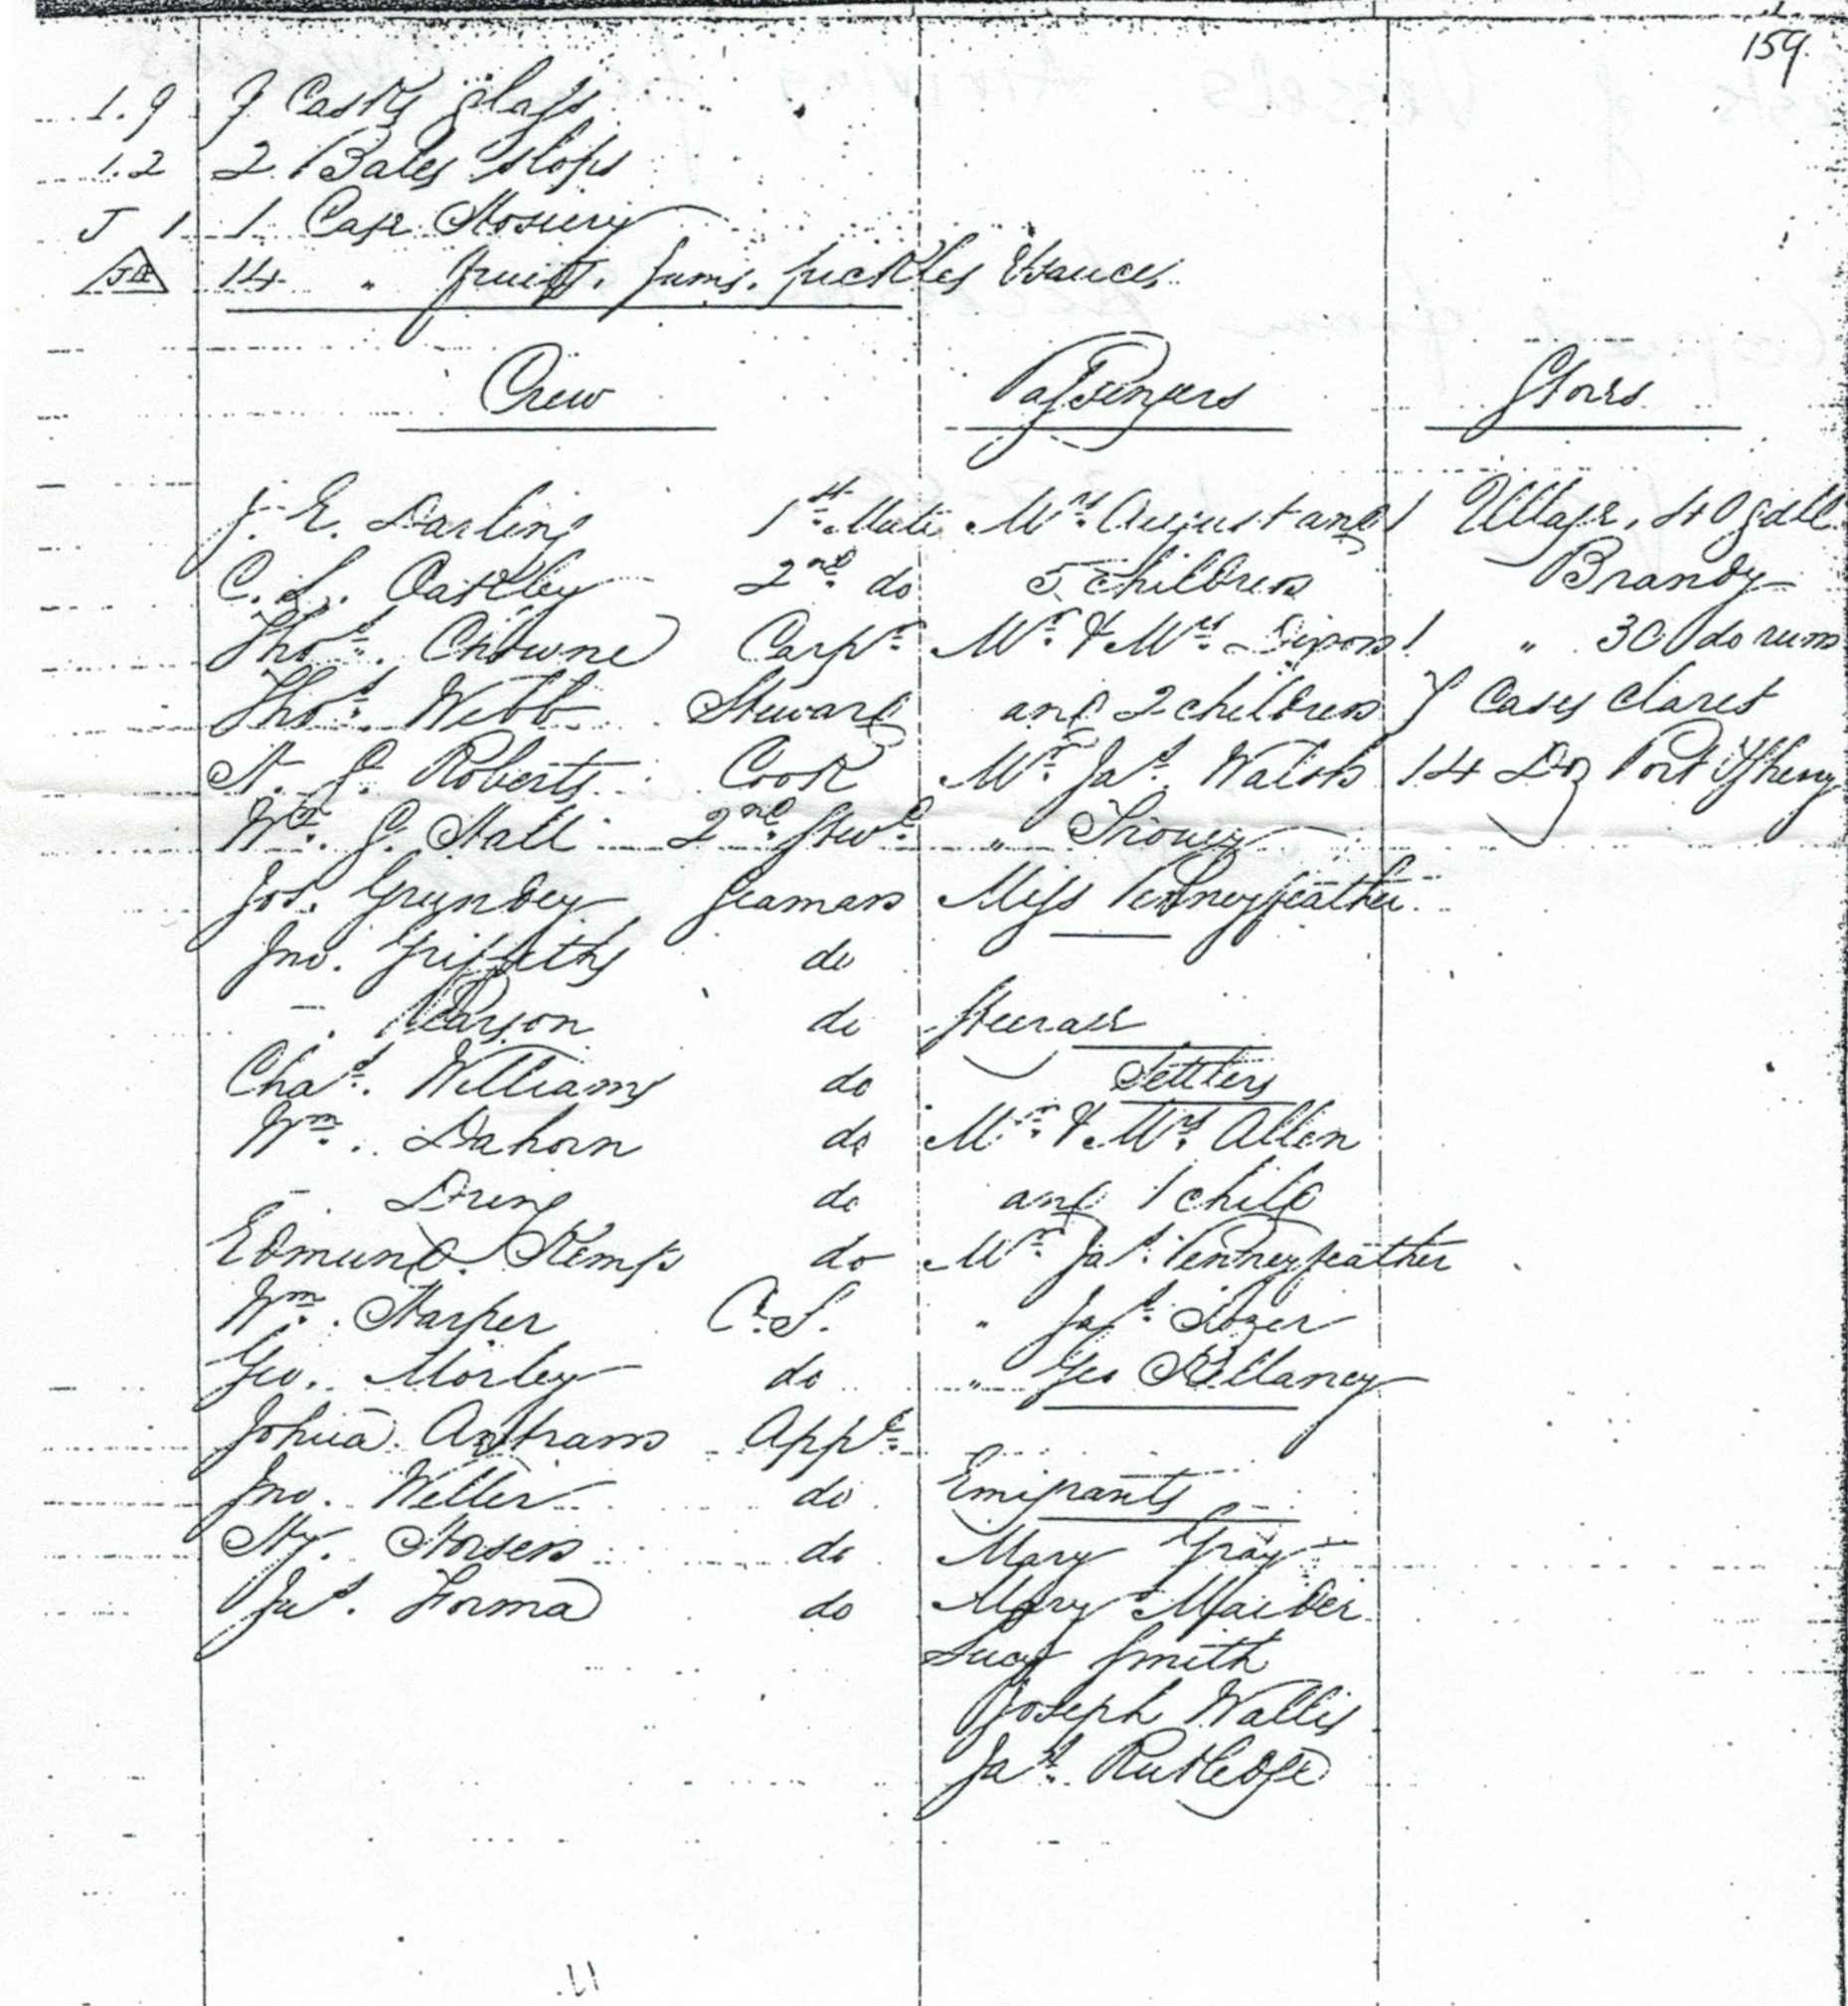 159
1.9 9 Casks glass
1.2 2 Bales slops
J 1 1 Case Hosiery
14 " fruits, Jams, pickles & sauces
Crew Passengers Stores
J. E. Darling 1st Mate Mrs August and 1 Ullage, 40 gall
C. L. Oastley 2nd do 5 children Brandy
Thos. Chowne Carpr Mr & Mrs Dixon 1 " 30 do rum
Thos. Webb Steward and 2 children 7 Cases Claret
N. G. Roberts Cook Mr Jas. Walsh 14 Doz Port & Sherry
Wm. G. Hall 2nd Stewd "
Jos. Gryndey Seaman Miss Penneyfeather
Jno. Griffiths do
- Pearson do Steerage
Chas. Williams do Settlers
Wm. Dahorn do Mr & Mrs Allen
- Dring do and 1 child
Edmund Kemp do Mr Jas. Penneyfeather
Wm. Harper O.S. " Jas.
Geo. Morley do " Geo Killaney
Johua. Antram Appe
Jno. Weller do Emigrants
Hy. Horsen do Mary Gray
Jas. Forma do Mary Maider
Lucy Smith
Joseph Wallis
Jas. Rutledge